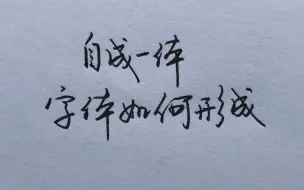 自成一体
字体如何形成